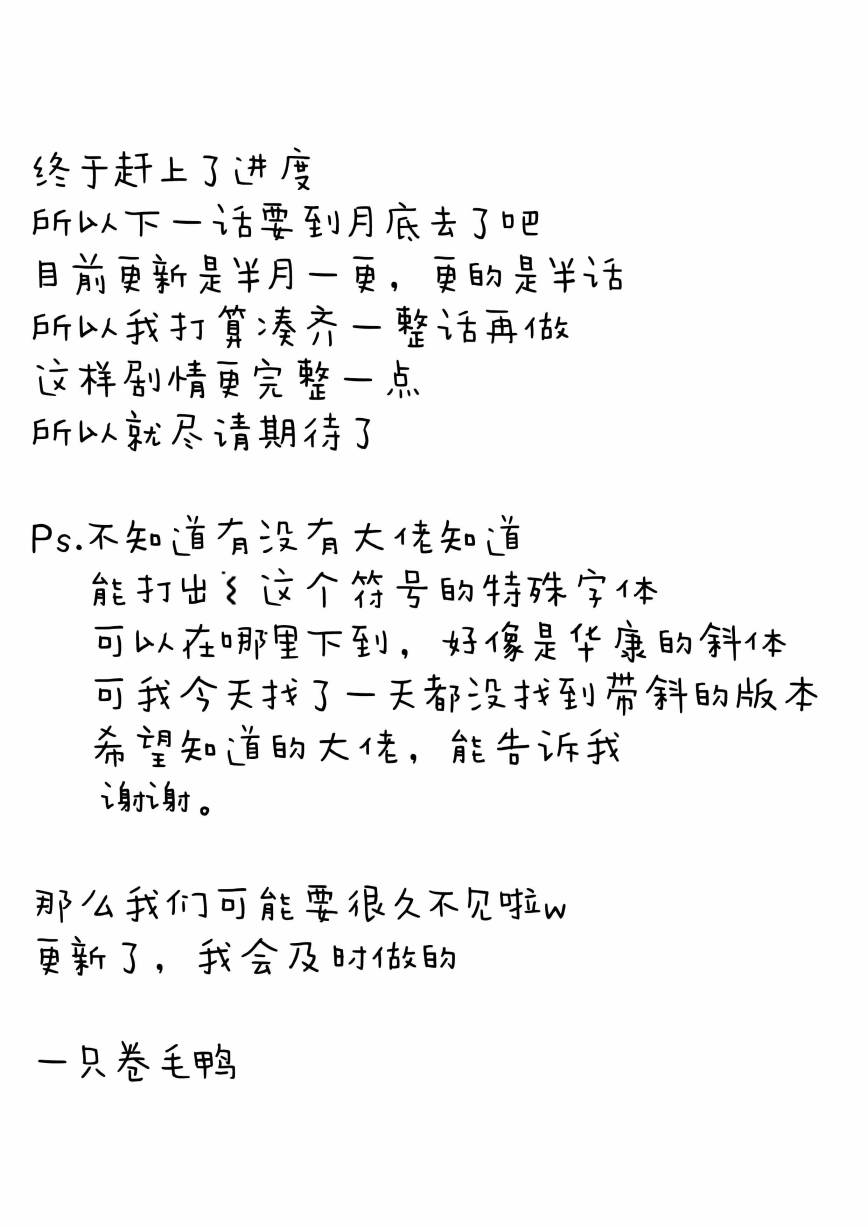 终于赶上了进度
所以下一话要到月底去了吧
目前更新是半月一更，更的是半话
所以我打算凑齐一整话再做
这样剧情更完整一点
所以就尽请期待了
Ps.不知道有没有大佬知道
能打出这个符号的特殊字体
可以在哪里下到，好像是华康的斜体
可我今天找了一天都没找到带斜的版本
希望知道的大佬，能告诉我
谢谢。
那么我们可能要很久不见啦w
更新了，我会及时做的
一只卷毛鸭